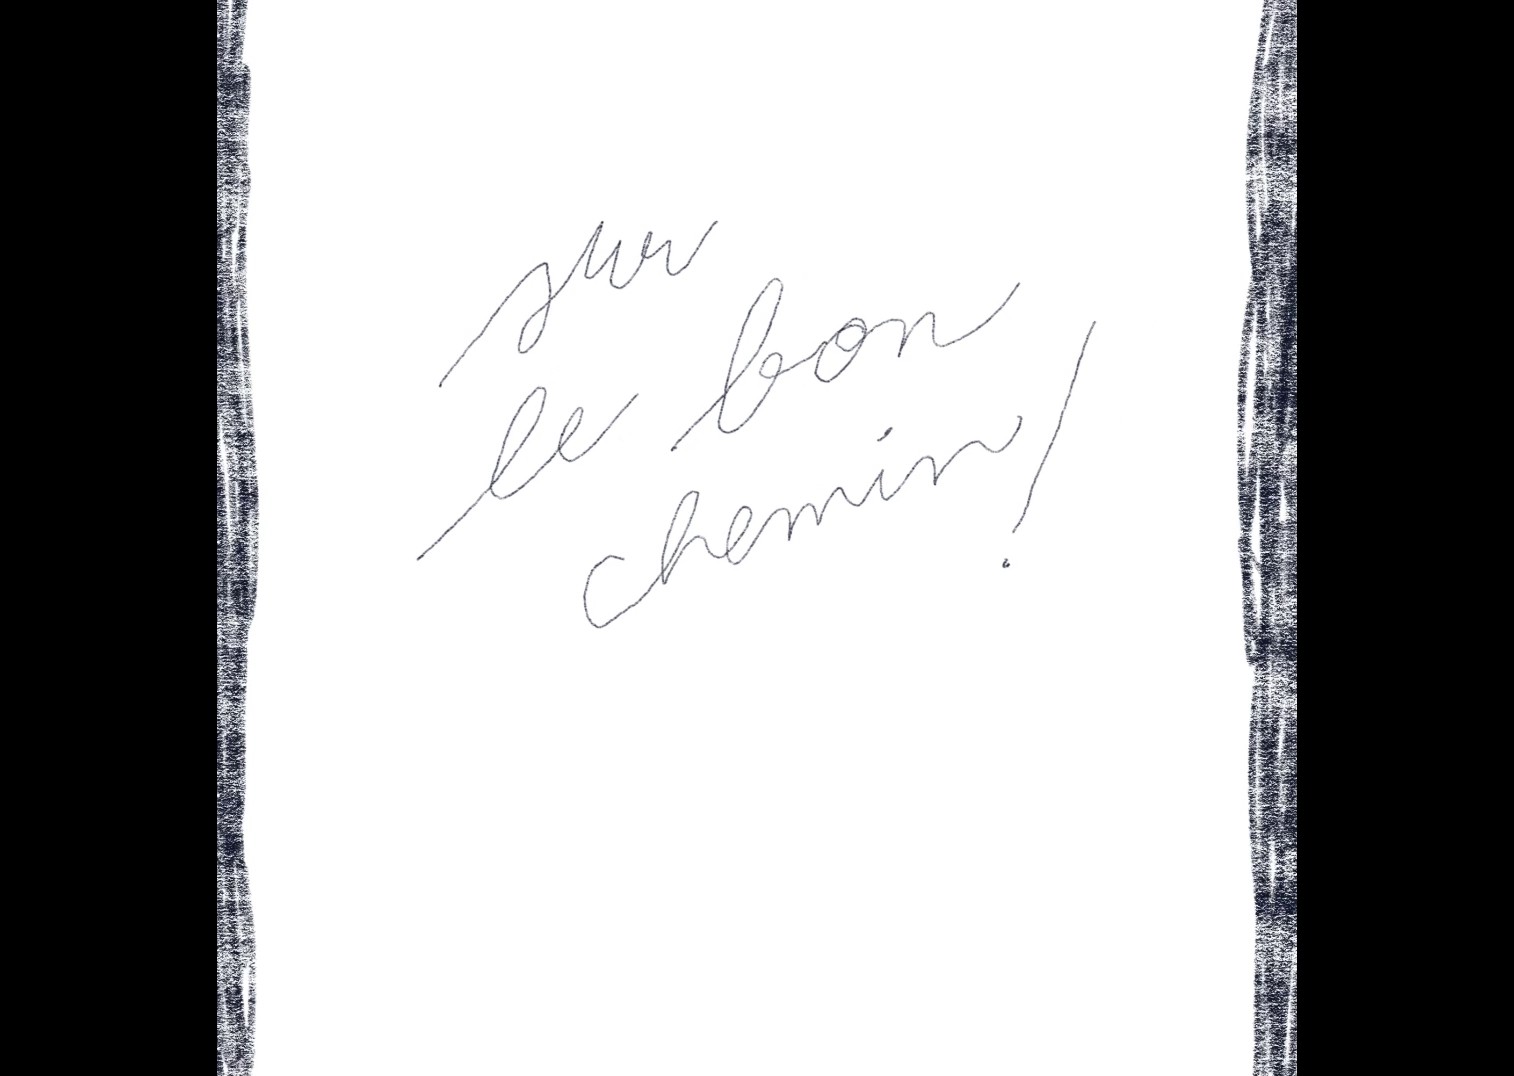 sur
le bon
chemin!